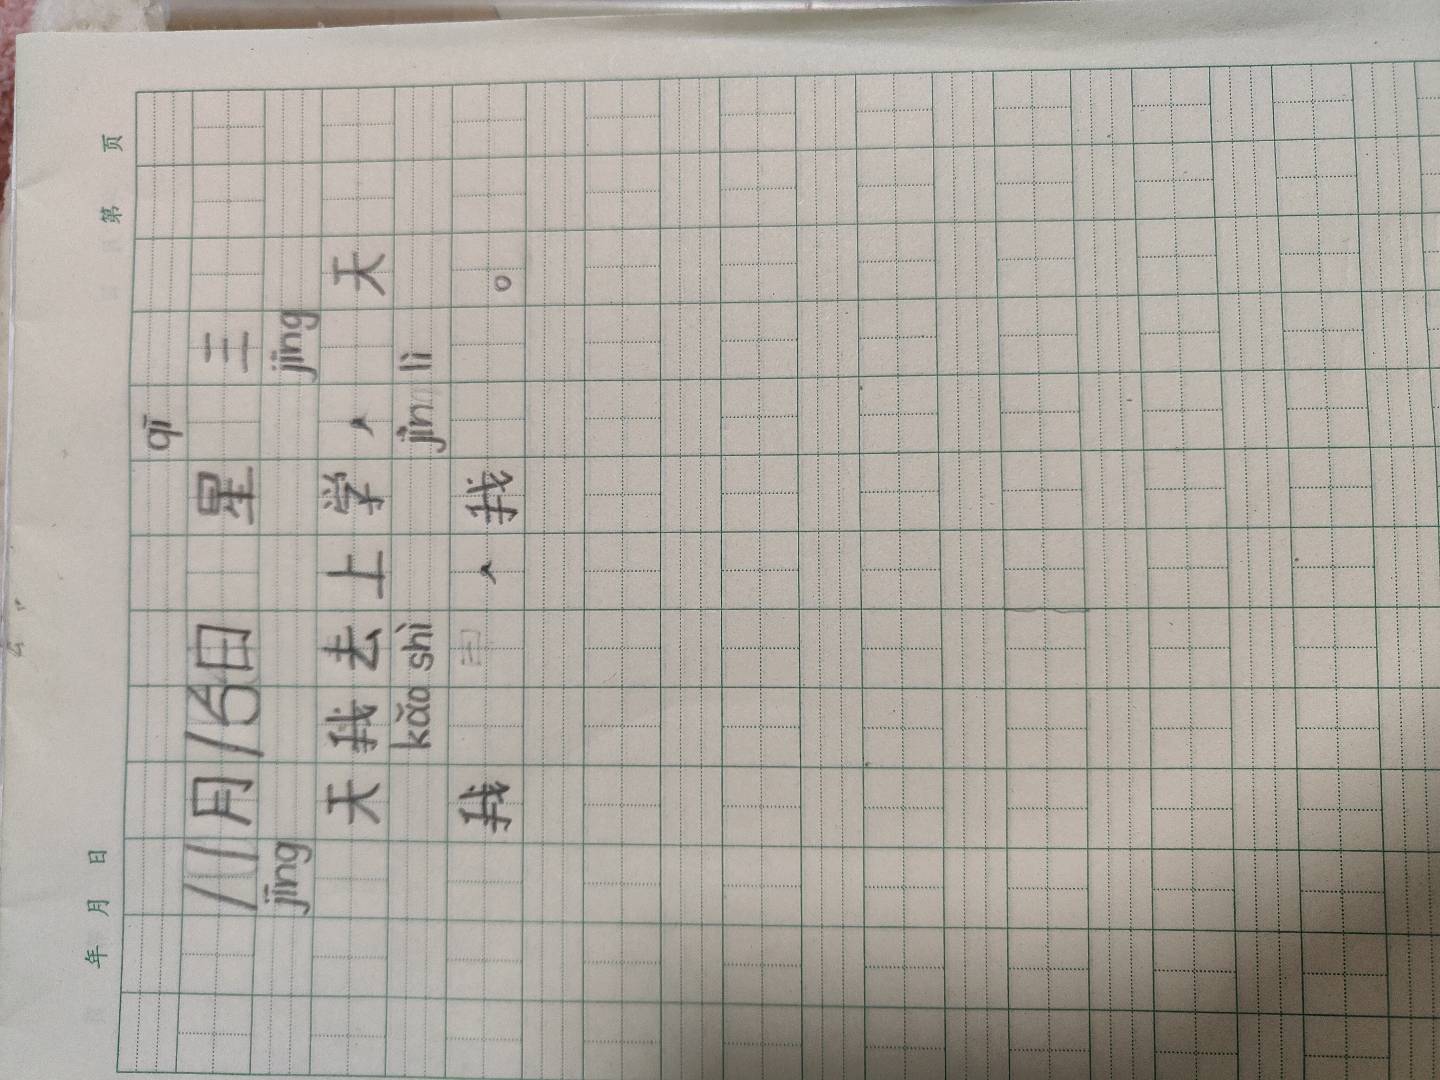 年 月 日 第 页
qī
11月16日 星 三
jīng jīng
天我去上学，天
kǎo shì jīn lì
我 ，我 。